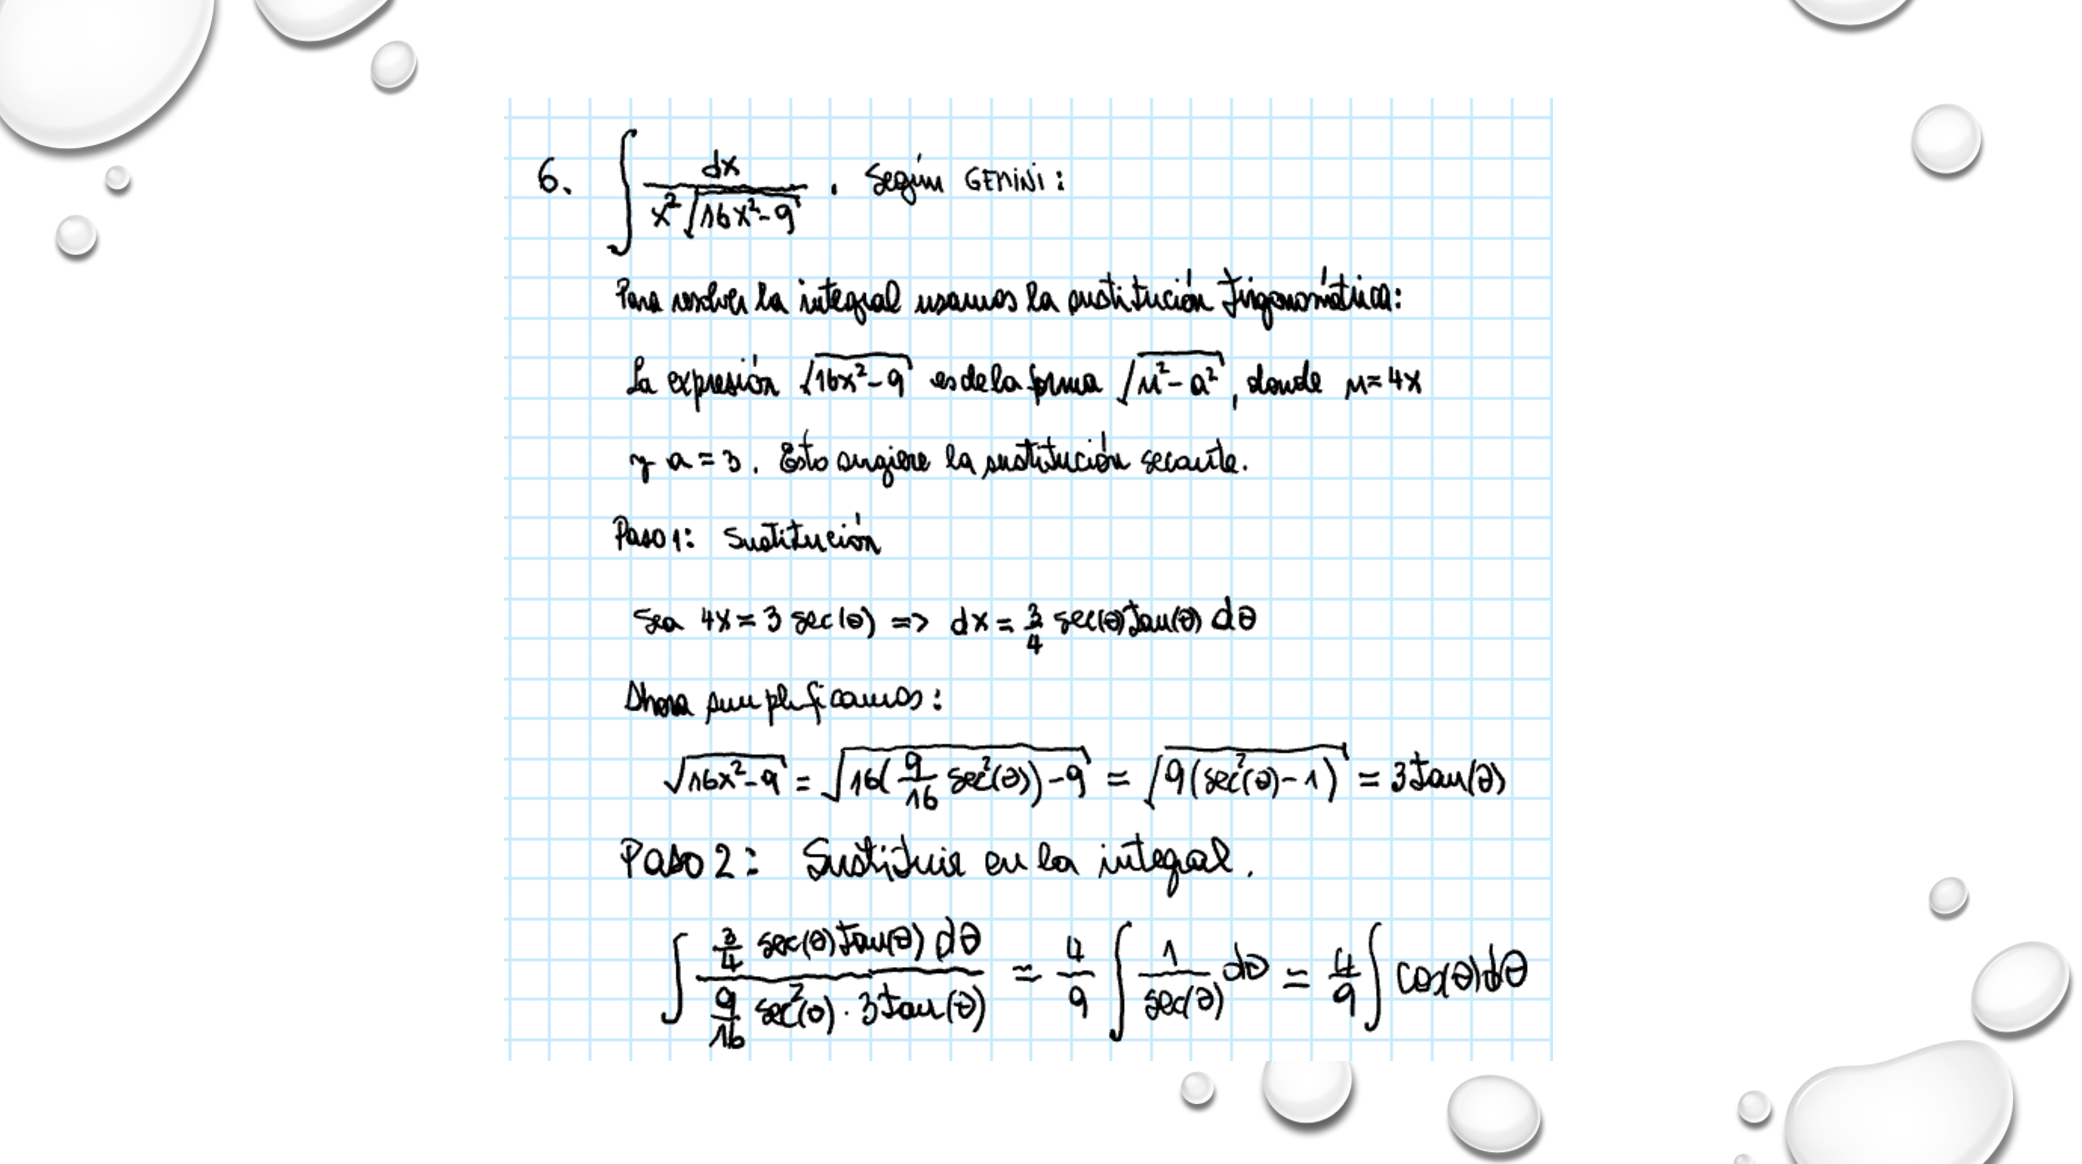 6. ∫ dx / (x² √(16x²-9)) . Según GEMINI:
Para resolver la integral usamos la sustitución trigonométrica:
La expresión √(16x²-9) es de la forma √(u²-a²), donde u=4x
y a=3. Esto sugiere la sustitución secante.
Paso 1: Sustitución
Sea 4x=3 sec(θ) => dx = 3/4 sec(θ)tan(θ) dθ
Ahora simplificamos:
√(16x²-9) = √(16(9/16 sec²(θ))-9) = √(9(sec²(θ)-1)) = 3tan(θ)
Paso 2: Sustituir en la integral.
∫ (3/4 sec(θ)tan(θ) dθ) / (9/16 sec²(θ) · 3tan(θ)) = 4/9 ∫ 1/sec(θ) dθ = 4/9 ∫ cos(θ)dθ